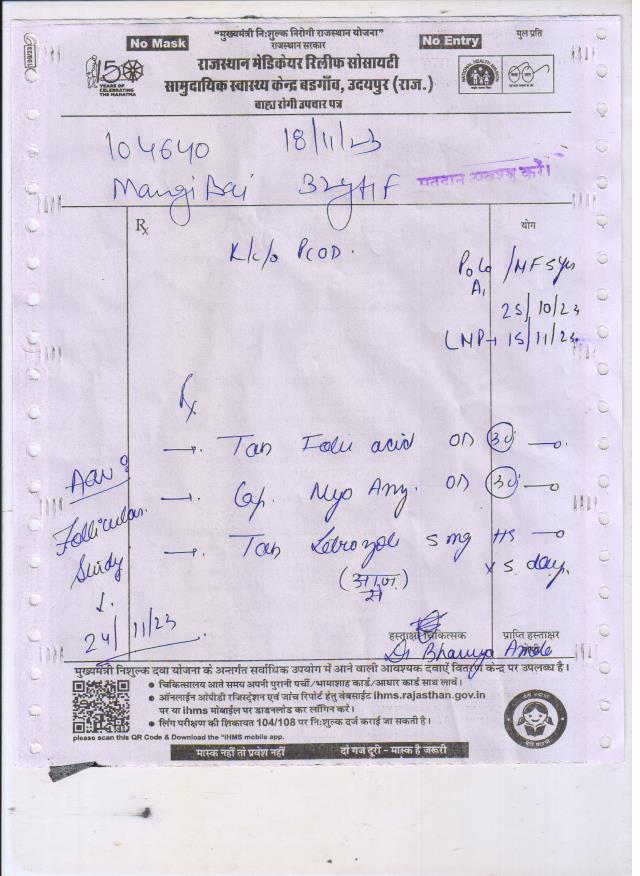 "मुख्यमंत्री निःशुल्क निरोगी राजस्थान योजना"
मुल प्रति
No Mask
राजस्थान सरकार
No Entry
राजस्थान मेडिकेयर रिलीफ सोसायटी
सामुदायिक स्वास्थ्य केन्द्र बडगाँव, उदयपुर (राज.)
बाह्य रोगी उपचार पत्र
YEARS OF
CELEBRATING
THE MAHATMA
104640 18/11/23
Mangi Bai 32y/F
मतदान अवश्य करें।
Rx
योग
K/c/o PCOD.
P0L0 /MF 5yrs
A1
25/10/23
LMP→ 15/11/23
Rx
→ Tab Folic acid OD 30
Adv:
→ Cap. Myo OD 30
Follicular
Study
→ Tab Letrozole 5 mg HS
x 5 day.
(आज से)
↓
24/11/23
हस्ताक्षर चिकित्सक
प्राप्ति हस्ताक्षर
Dr Bhavya
मुख्यमंत्री निःशुल्क दवा योजना के अन्तर्गत सर्वाधिक उपयोग में आने वाली आवश्यक दवाऐं वितरण केन्द्र पर उपलब्ध है।
• चिकित्सालय आते समय अपनी पुरानी पर्ची/भामाशाह कार्ड/आधार कार्ड साथ लावें।
• ऑनलाईन ओपीडी रजिस्ट्रेशन एवं जांच रिपोर्ट हेतु वेबसाईट ihms.rajasthan.gov.in
पर या ihms मोबाईल पर डाउनलोड कर लॉगिन करें।
• लिंग परीक्षण की शिकायत 104/108 पर निःशुल्क दर्ज कराई जा सकती है।
please scan this QR Code & Download the "iHMS mobile app.
मास्क नहीं तो प्रवेश नहीं दो गज दूरी - मास्क है जरूरी